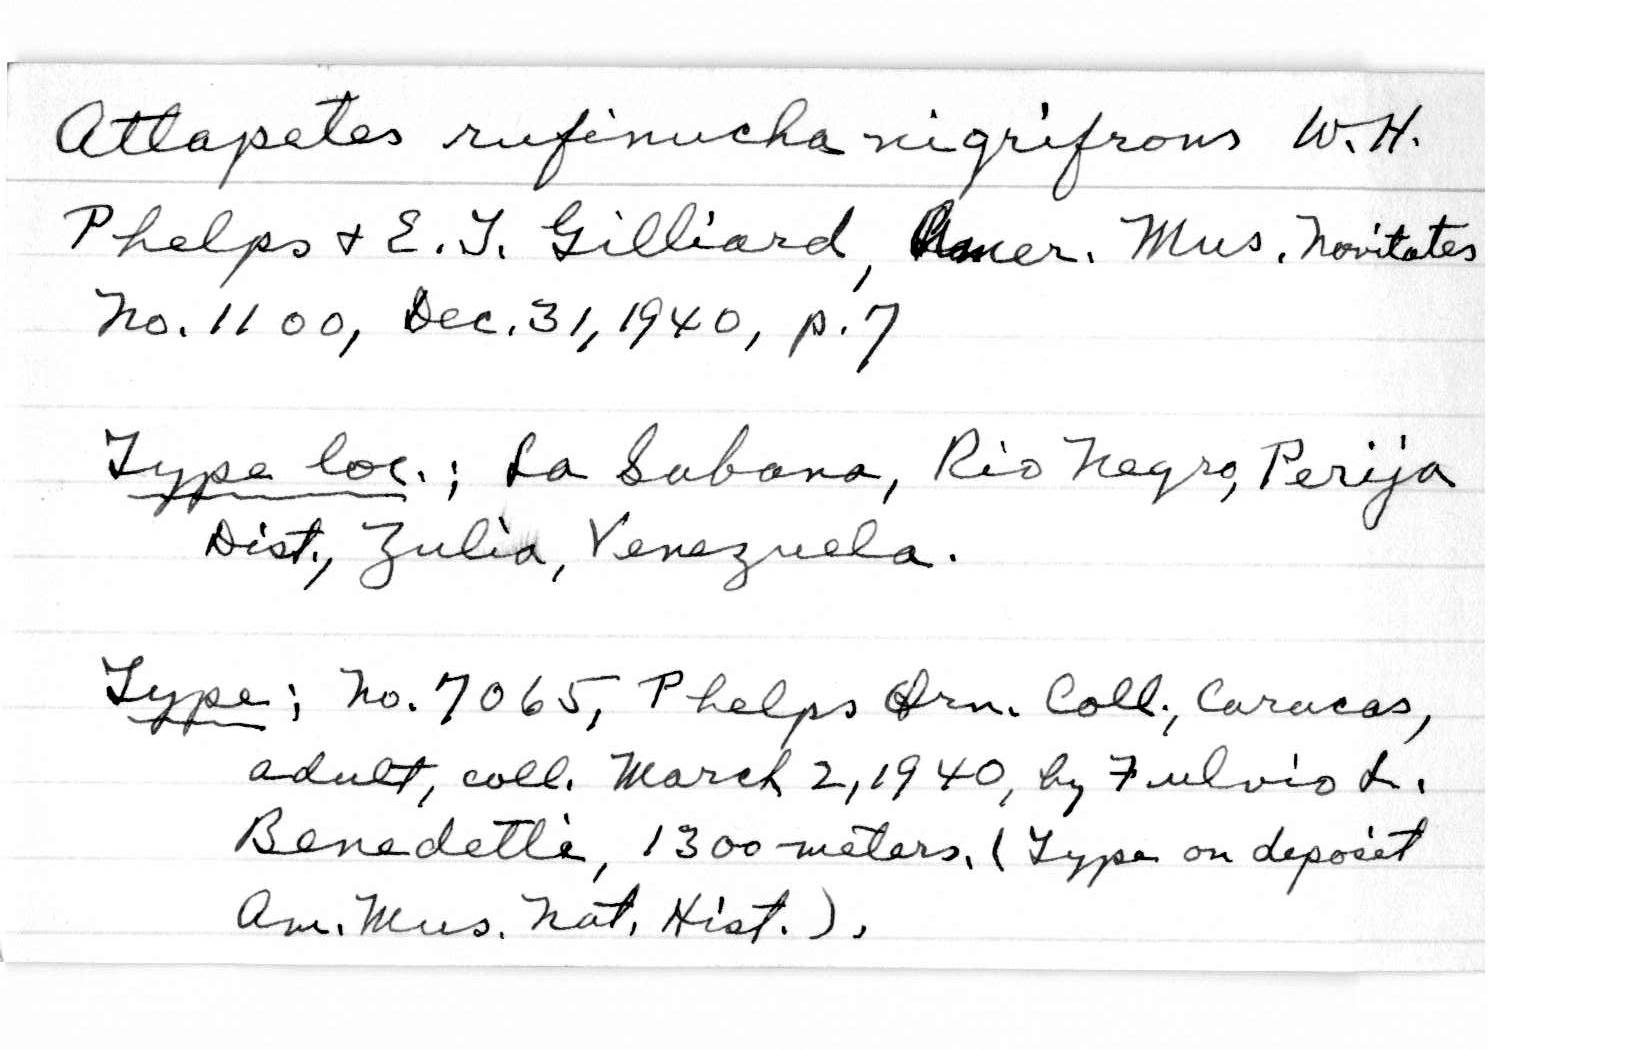 Atlapetes rufinucha nigrifrons W.H.
Phelps & E.T. Gilliard, Amer. Mus. Novitates
No. 1100, Dec. 31, 1940, p. 7
Type loc.; La Sabana, Rio Negro, Perija
Dist., Zulia, Venezuela.
Type; No. 7065, Phelps Orn. Coll., Caracas,
adult, coll. March 2, 1940, by Fulvio L.
Benedetti, 1300 meters. (Type on deposit
Am. Mus. Nat. Hist.).